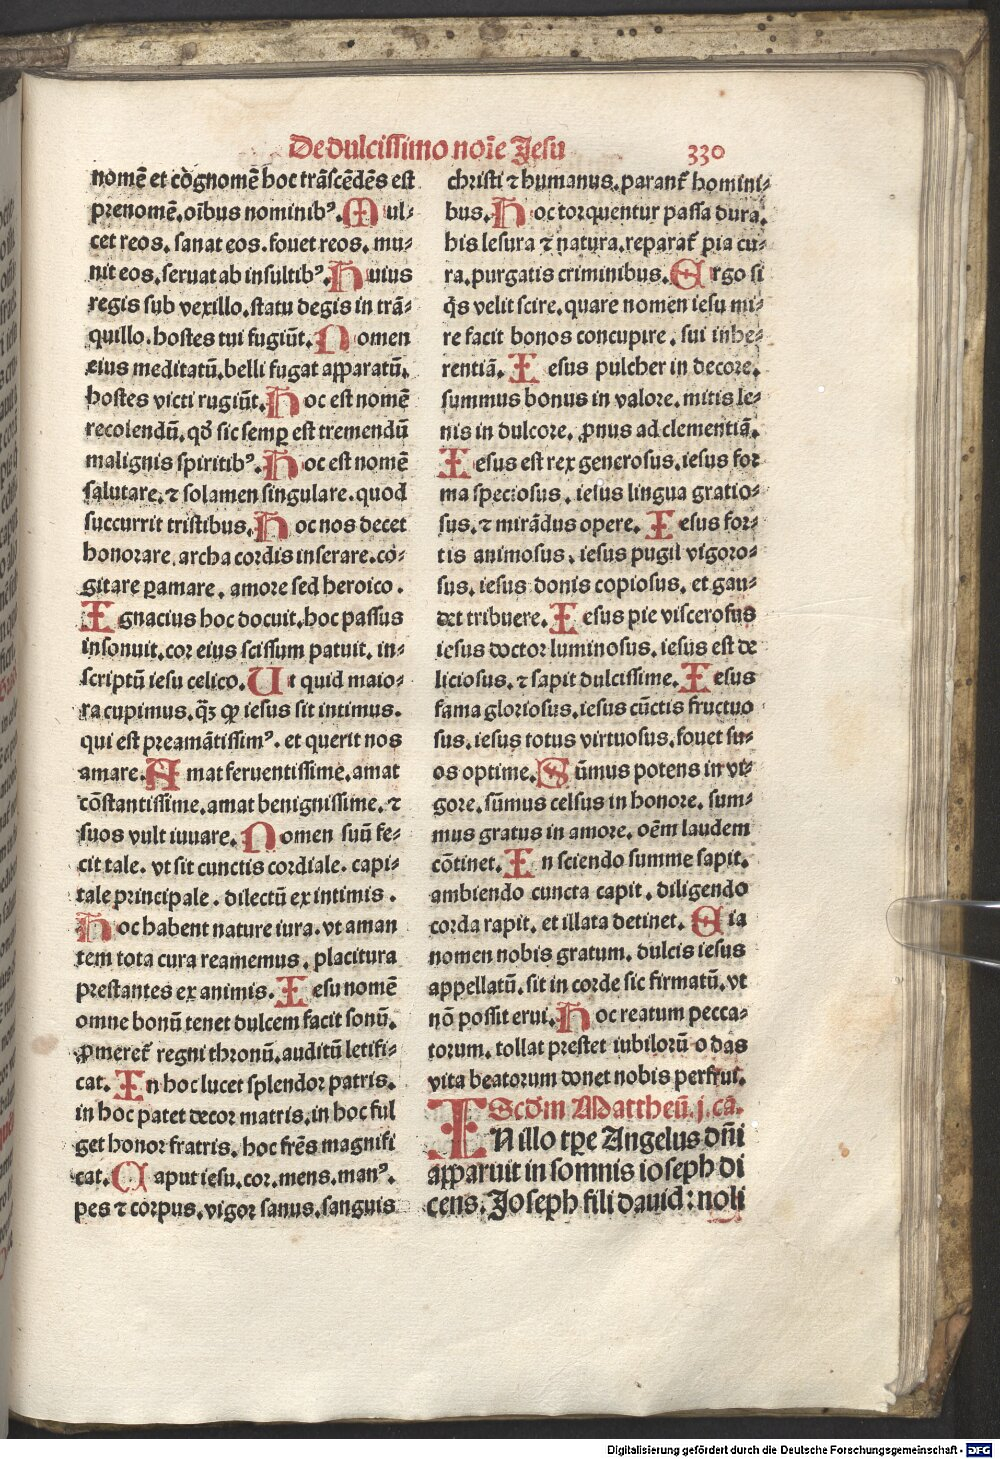 De dulcissimo noīe Jesu 330
nomē et cōgnomē hoc trāscēdēs est
prenomē. oībus nominibꝰ. Mul⸗
cet reos. sanat eos. fouet reos. mu⸗
nit eos. seruat ab insultibꝰ. Huius
regis sub vexillo. statu degis in trā⸗
quillo. hostes tui fugiūt. Nomen
eius meditatū. belli fugat apparatū.
hostes victi rugiūt. Hoc est nomē
recolendū. qđ sic semꝑ est tremendū
malignis spiritibꝰ. Hoc est nomē
salutare. ⁊ solamen singulare. quod
succurrit tristibus. Hoc nos decet
honorare. archa cordis inserare. co⸗
gitare ꝑamare. amore sed heroico.
Ignacius hoc docuit. hoc passus
insonuit. cor eius scissum patuit. in⸗
scriptū iesu celico. Ut quid maio⸗
ra cupimus. qꝫ ꝙ iesus sit intimus.
qui est preamātissimꝰ. et querit nos
amare. Amat feruentissime. amat
cōstantissime. amat benignissime. ⁊
suos vult iuuare. Nomen suū fe⸗
cit tale. vt sit cunctis cordiale. capi⸗
tale principale. dilectū ex intimis.
Hoc habent nature iura. vt aman
tem tota cura reamemus. placitura
prestantes ex animis. Iesu nomē
omne bonū tenet dulcem facit sonū.
ꝓmeret᷑ regni thronū. auditū letifi⸗
cat. In hoc lucet splendor patris.
in hoc patet decor matris. in hoc ful
get honor fratris. hoc frēs magnifi
cat. Caput iesu. cor. mens. manꝰ.
pes ⁊ corpus. vigor sanus. sanguis
christi ⁊ humanus. parant᷑ homini⸗
bus. Hoc torquentur passa dura.
his lesura ⁊ natura. reparat᷑ pia cu⸗
ra. purgatis criminibus. Ergo si
q̄s velit scire. quare nomen iesu mi⸗
re facit bonos concupire. sui inhe⸗
rentiā. Iesus pulcher in decore.
summus bonus in valore. mitis le⸗
nis in dulcore. ꝓnus ad clementiā.
Iesus est rex generosus. iesus for
ma speciosus. iesus lingua gratio⸗
sus. ⁊ mirādus opere. Iesus for⸗
tis animosus. iesus pugil vigoro⸗
sus. iesus donis copiosus. et gau⸗
det tribuere. Iesus pie viscerosus
iesus doctor luminosus. iesus est de
liciosus. ⁊ sapit dulcissime. Iesus
fama gloriosus. iesus cūctis fructuo
sus. iesus totus virtuosus. fouet su⸗
os optime. Sūmus potens in vi⸗
gore. sūmus celsus in honore. sum⸗
mus gratus in amore. oēm laudem
cōtinet. In sciendo summe sapit.
ambiendo cuncta capit. diligendo
corda rapit. et illata detinet. Eia
nomen nobis gratum. dulcis iesus
appellatū. sit in corde sic firmatū. vt
nō possit erui. Hoc reatum pecca⸗
torum. tollat prestet iubilorū odas
vita beatorum donet nobis perfrui.
Scđm Mattheū. j. ca.
IN illo tꝑe Angelus dn̄i
apparuit in somnis ioseph di
cens. Joseph fili dauid: noli
Digitalisierung gefördert durch die Deutsche Forschungsgemeinschaft - DFG